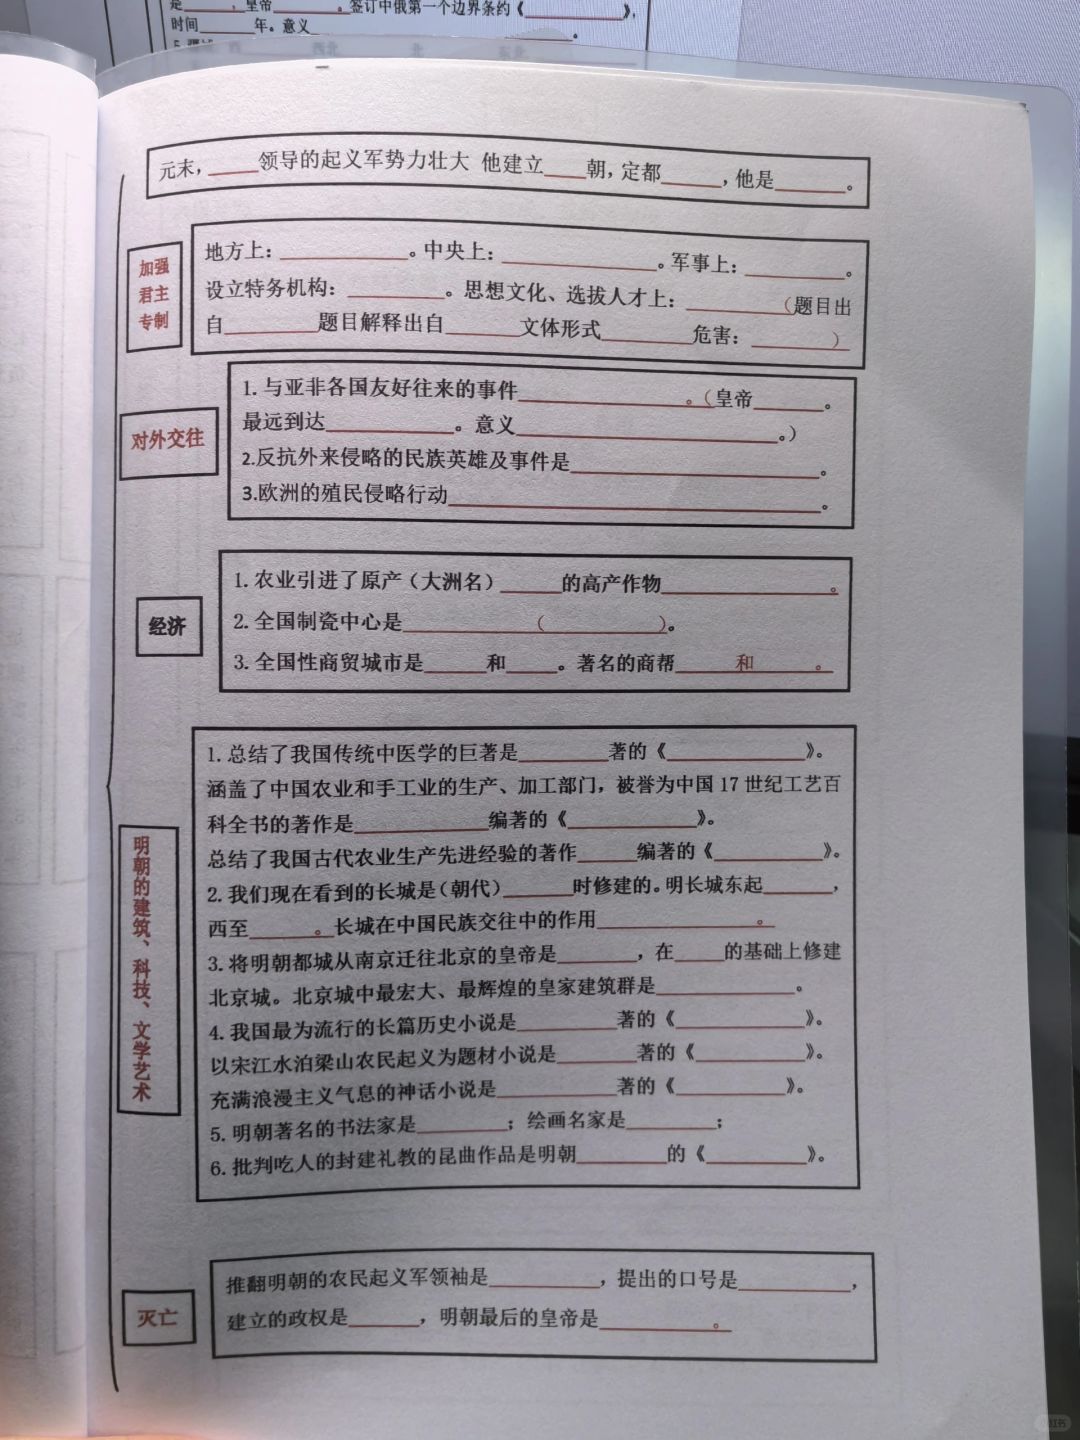 是______，皇帝______。签订中俄第一个边界条约《______》，
时间______年。意义______。
西北 北 东北
元末，______领导的起义军势力壮大 他建立____朝，定都______，他是______。
加强
君主
专制
地方上：____________。中央上：______________。军事上：_________。
设立特务机构：_________。思想文化、选拔人才上：_________（题目出
自________题目解释出自_______文体形式________危害：________）
对外交往
1.与亚非各国友好往来的事件________________。（皇帝______。
最远到达____________。意义________________________。）
2.反抗外来侵略的民族英雄及事件是______________________。
3.欧洲的殖民侵略行动__________________________________。
经济
1.农业引进了原产（大洲名）______的高产作物________________。
2.全国制瓷中心是____________（__________）。
3.全国性商贸城市是______和_____。著名的商帮______和______。
明朝的建筑、科技、文学艺术
1.总结了我国传统中医学的巨著是________著的《____________》。
涵盖了中国农业和手工业的生产、加工部门，被誉为中国17世纪工艺百
科全书的著作是____________编著的《____________》。
总结了我国古代农业生产先进经验的著作_____编著的《__________》。
2.我们现在看到的长城是（朝代）______时修建的。明长城东起______，
西至______。长城在中国民族交往中的作用______________。
3.将明朝都城从南京迁往北京的皇帝是_______，在____的基础上修建
北京城。北京城中最宏大、最辉煌的皇家建筑群是____________。
4.我国最为流行的长篇历史小说是_________著的《____________》。
以宋江水泊梁山农民起义为题材小说是_______著的《__________》。
充满浪漫主义气息的神话小说是___________著的《__________》。
5.明朝著名的书法家是________；绘画名家是________；
6.批判吃人的封建礼教的昆曲作品是明朝________的《_________》。
灭亡
推翻明朝的农民起义军领袖是__________，提出的口号是__________，
建立的政权是______，明朝最后的皇帝是__________。